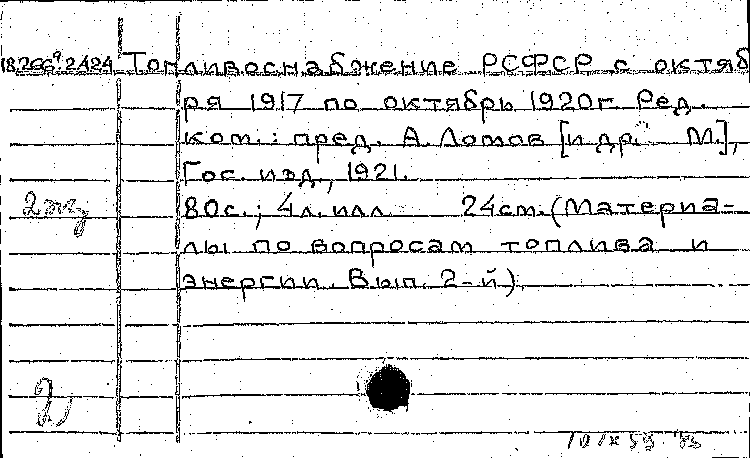 18.266⁹.2.424 Топливоснабжение РСФСР с октяб
ря 1917 по октябрь 1920г. Ред.
ком.: пред. А. Ломов [и др. М.],
Гос. изд., 1921.
80с.; 4л. илл 24см. (Материа-
лы по вопросам топлива и
энергии. Вып. 2-й).
2